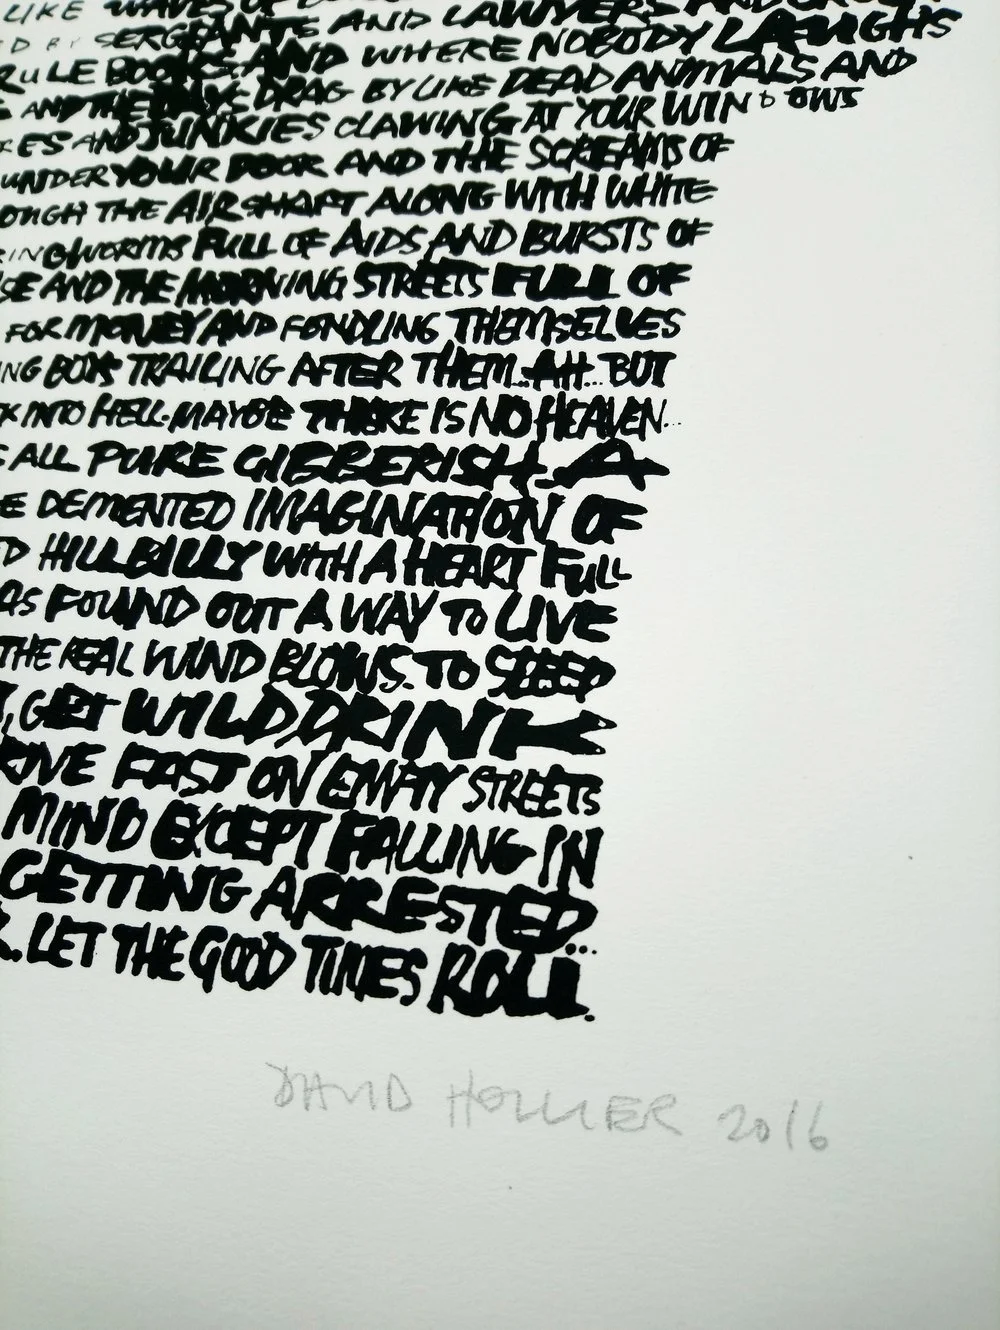 LIKE WAVES OF
D BY SERGEANTS AND LAWYERS AND
RULE BOOKS AND WHERE NOBODY LAUGHS
AND THE DAYS DRAG BY LIKE DEAD ANIMALS AND
KES AND JUNKIES CLAWING AT YOUR WINDOWS
UNDER YOUR DOOR AND THE SCREAMS OF
OUGH THE AIRSHAFT ALONG WITH WHITE
RINGWORMS FULL OF AIDS AND BURSTS OF
SE AND THE MORNING STREETS FULL OF
FOR MONEY AND FONDLING THEMSELVES
NG BOYS TRAILING AFTER THEM..AH... BUT
K INTO HELL. MAYBE THERE IS NO HEAVEN...
S ALL PURE GIBBERISH. A
E DEMENTED IMAGINATION OF
D HILLBILLY WITH A HEART FULL
AS FOUND OUT A WAY TO LIVE
THE REAL WIND BLOWS. TO SLEEP
, GET WILD DRINK
RIVE FAST ON EMPTY STREETS
MIND EXCEPT FALLING IN
GETTING ARRESTED...
R. LET THE GOOD TIMES ROLL.
DAVID HOLLIER 2016